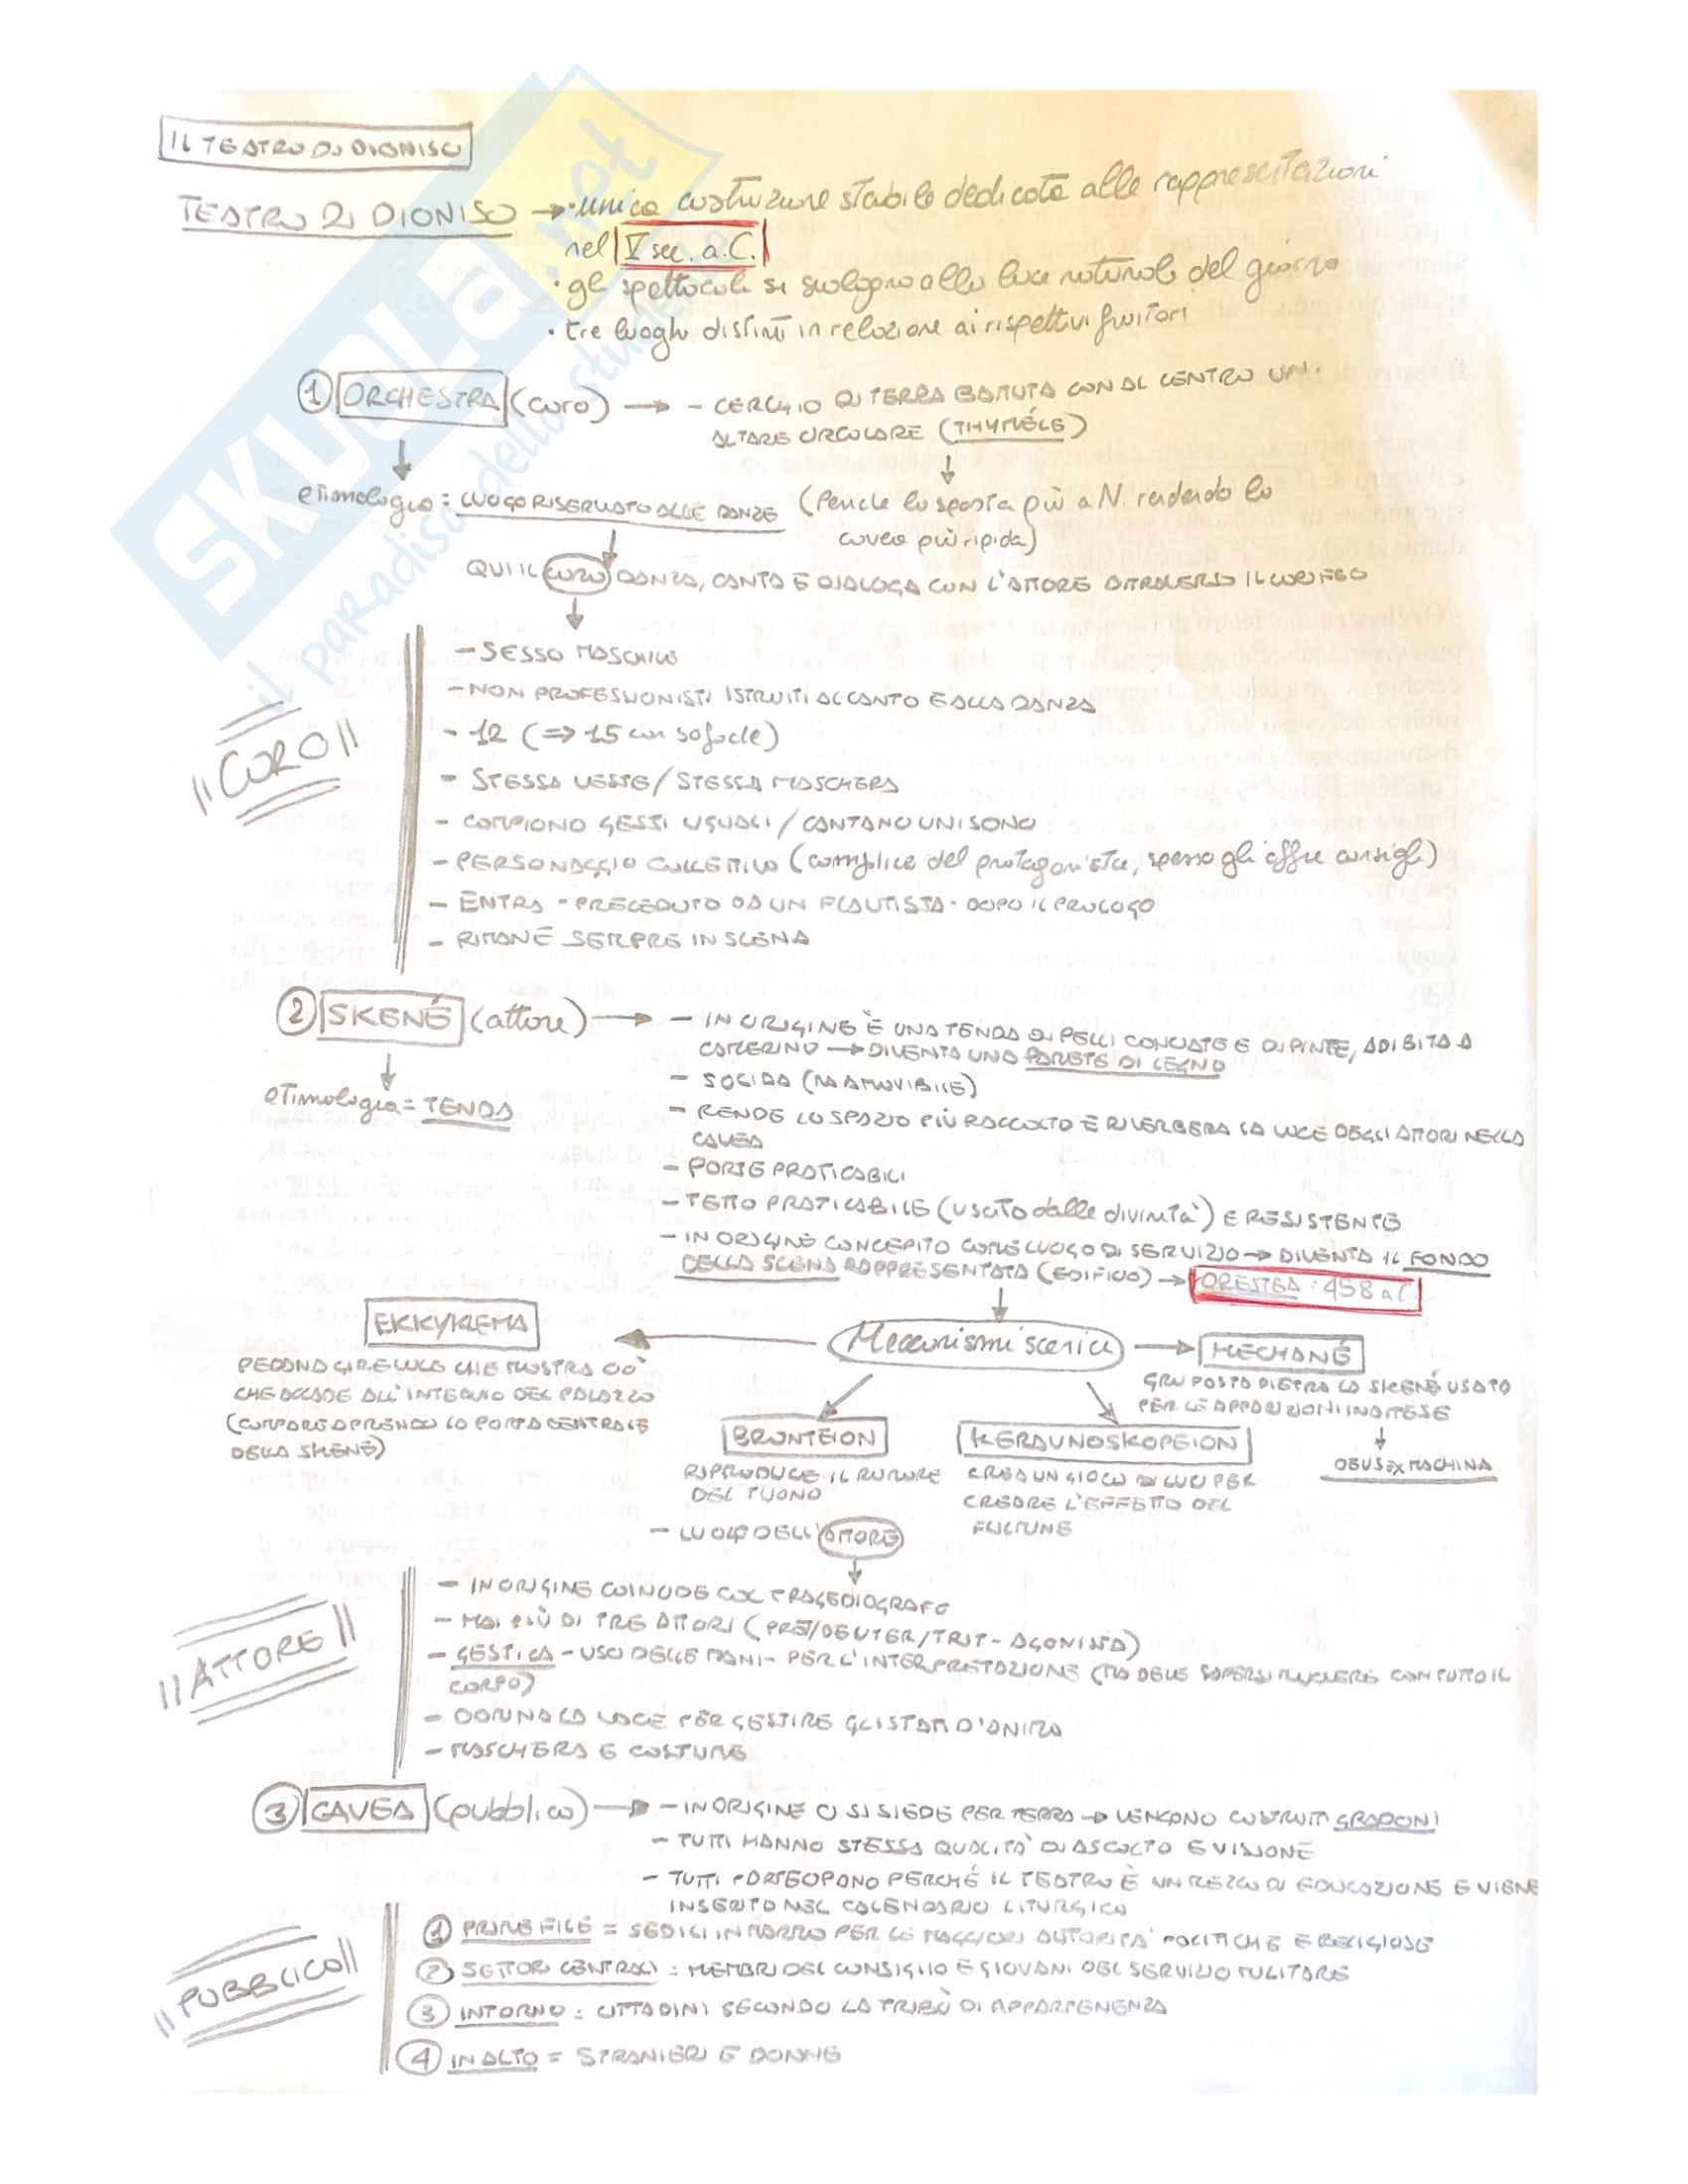 IL TEATRO DI DIONISO
TEATRO DI DIONISO → • unica costruzione stabile dedicata alle rappresentazioni
nel V sec. a.C.
• gli spettacoli si svolgono alla luce naturale del giorno
• tre luoghi distinti in relazione ai rispettivi fruitori
① ORCHESTRA (coro) → - CERCHIO DI TERRA BATTUTA CON AL CENTRO UN'
ALTARE CIRCOLARE (THYMÉLE)
etimologia = LUOGO RISERVATO ALLE DANZE (Pericle lo sposta più a N. rendendo la
cavea più ripida)
QUI IL CORO DANZA, CANTA E DIALOGA CON L'ATTORE ATTRAVERSO IL CORIFEO
"CORO"
- SESSO MASCHILE
- NON PROFESSIONISTI ISTRUITI AL CANTO E ALLA DANZA
- 12 (=> 15 con Sofocle)
- STESSA VESTE / STESSA MASCHERA
- COMPIONO GESTI UGUALI / CANTANO UNISONO
- PERSONAGGIO COLLETTIVO (complice del protagonista, spesso gli offre consigli)
- ENTRA - PRECEDUTO DA UN FLAUTISTA - DOPO IL PROLOGO
- RIMANE SEMPRE IN SCENA
② SKENÉ (attore) → - IN ORIGINE È UNA TENDA DI PELLI CONCIATE E DIPINTE, ADIBITA A
CAMERINO → DIVENTA UNA PARETE DI LEGNO
- SOLIDA (MA AMOVIBILE)
etimologia = TENDA
- RENDE LO SPAZIO PIÙ RACCOLTO E RIVERBERA LA LUCE DEGLI ATTORI NELLA
CAVEA
- PORTE PRATICABILI
- TETTO PRATICABILE (usato dalle divinità) E RESISTENTE
- IN ORIGINE CONCEPITO COME LUOGO DI SERVIZIO → DIVENTA IL FONDO
DELLA SCENA RAPPRESENTATA (EDIFICIO) → ORESTEA: 458 a.C.
EKKYKLEMA
Meccanismi scenici
MECHANÉ
PEDANA GIREVOLE CHE MOSTRA CIÒ
CHE ACCADE ALL'INTERNO DEL PALAZZO
(COMPARE APRENDO LA PORTA CENTRALE
DELLA SKENÉ)
GRU POSTA DIETRO LA SKENÉ USATA
PER LE APPARIZIONI INATTESE
DEUS EX MACHINA
BRONTEION
RIPRODUCE IL RUMORE
DEL TUONO
KERAUNOSKOPEION
CREA UN GIOCO DI LUCI PER
CREARE L'EFFETTO DEL
FULMINE
- LUOGO DELL'ATTORE
"ATTORE"
- IN ORIGINE COINCIDE COL TRAGEDIOGRAFO
- MAI PIÙ DI TRE ATTORI (PROT/DEUTER/TRIT - AGONISTA)
- GESTICA - USO DELLE MANI - PER L'INTERPRETAZIONE (MA DEVE SAPERSI MUOVERE CON TUTTO IL
CORPO)
- DOMINA LA VOCE PER GESTIRE GLI STATI D'ANIMO
- MASCHERA E COSTUME
③ CAVEA (pubblico) → - IN ORIGINE CI SI SIEDE PER TERRA → VENGONO COSTRUITI GRADONI
- TUTTI HANNO STESSA QUALITÀ DI ASCOLTO E VISIONE
- TUTTI PARTECIPANO PERCHÉ IL TEATRO È UN MEZZO DI EDUCAZIONE E VIENE
INSERITO NEL CALENDARIO LITURGICO
"PUBBLICO"
① PRIME FILE = SEDILI IN MARMO PER LE MAGGIORI AUTORITÀ POLITICHE E RELIGIOSE
② SETTORI CENTRALI = MEMBRI DEL CONSIGLIO E GIOVANI DEL SERVIZIO MILITARE
③ INTORNO = CITTADINI SECONDO LA TRIBÙ DI APPARTENENZA
④ IN ALTO = STRANIERI E DONNE
SKUOLA.net
il paradiso dello studente